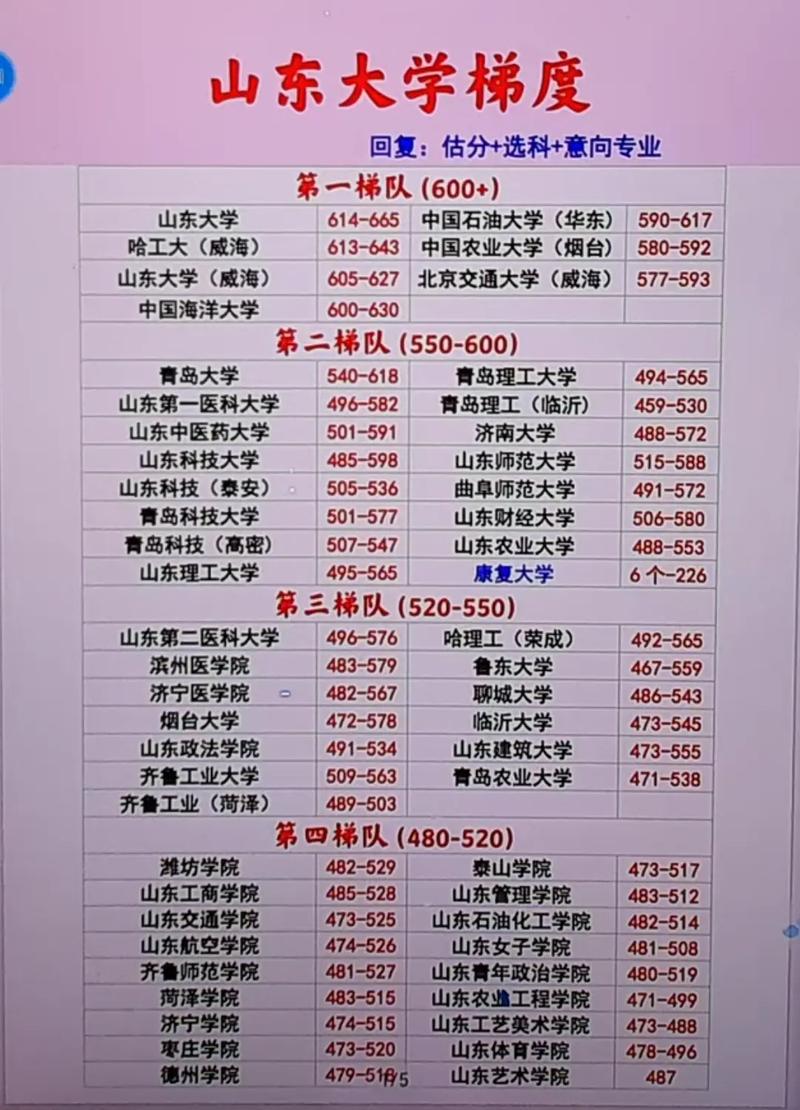 山东大学梯度
回复：估分+选科+意向专业
第一梯队(600+)
山东大学 614-665 中国石油大学（华东） 590-617
哈工大（威海） 613-643 中国农业大学（烟台） 580-592
山东大学（威海） 605-627 北京交通大学（威海） 577-593
中国海洋大学 600-630
第二梯队(550-600)
青岛大学 540-618 青岛理工大学 494-565
山东第一医科大学 496-582 青岛理工（临沂） 459-530
山东中医药大学 501-591 济南大学 488-572
山东科技大学 485-598 山东师范大学 515-588
山东科技（泰安） 505-536 曲阜师范大学 491-572
青岛科技大学 501-577 山东财经大学 506-580
青岛科技（高密） 507-547 山东农业大学 488-553
山东理工大学 495-565 康复大学 6个-226
第三梯队(520-550)
山东第二医科大学 496-576 哈理工（荣成） 492-565
滨州医学院 483-579 鲁东大学 467-559
济宁医学院 482-567 聊城大学 486-543
烟台大学 472-578 临沂大学 473-545
山东政法学院 491-534 山东建筑大学 473-555
齐鲁工业大学 509-563 青岛农业大学 471-538
齐鲁工业（菏泽） 489-503
第四梯队(480-520)
潍坊学院 482-529 泰山学院 473-517
山东工商学院 485-528 山东管理学院 483-512
山东交通学院 473-525 山东石油化工学院 482-514
山东航空学院 474-526 山东女子学院 481-508
齐鲁师范学院 481-527 山东青年政治学院 480-519
菏泽学院 483-515 山东农业工程学院 471-499
济宁学院 474-515 山东工艺美术学院 473-488
枣庄学院 473-520 山东体育学院 478-496
德州学院 山东艺术学院 487